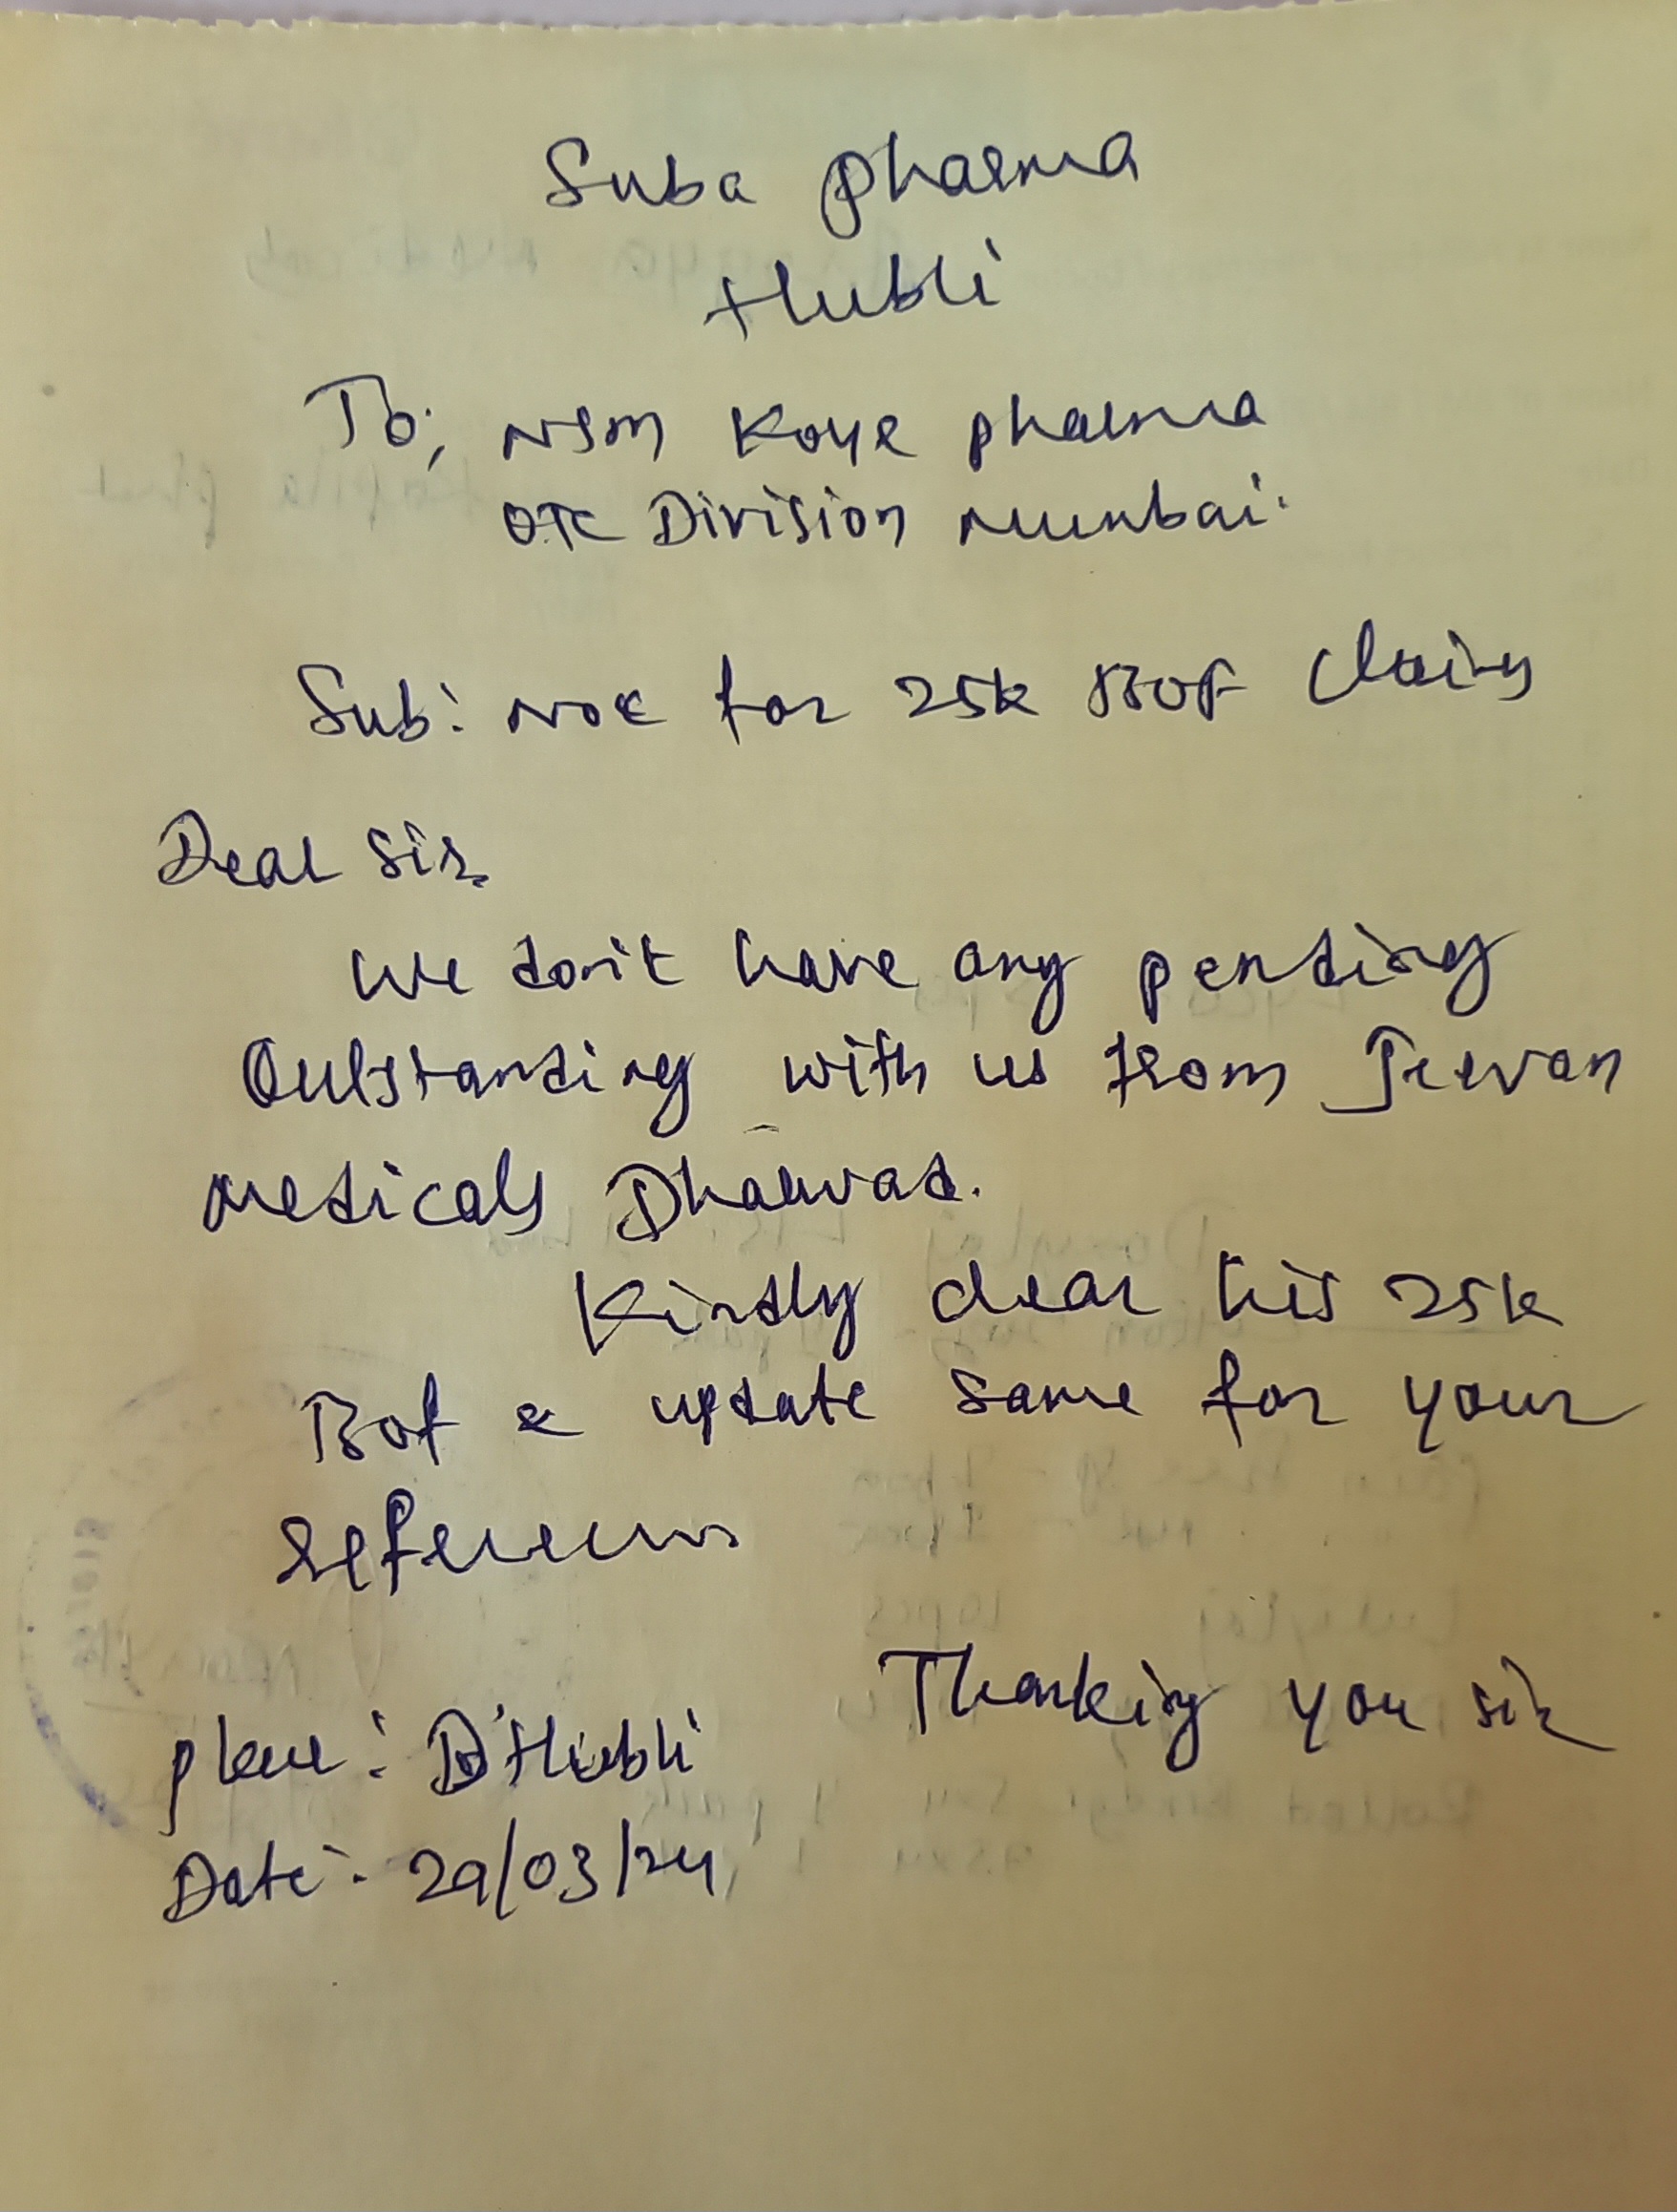 Suba pharma
Hubli
To, NSM Koye pharma
OTC Division Mumbai.
Sub: NOC for 25k BOF Claim
Dear Sir.
We don't have any pending
Outstanding with us from Jeevan
Medicals Dharwad.
Kindly clear his 25k
Bof & update same for your
reference
Thanking you sir
place: Hubli
Date: 29/03/24